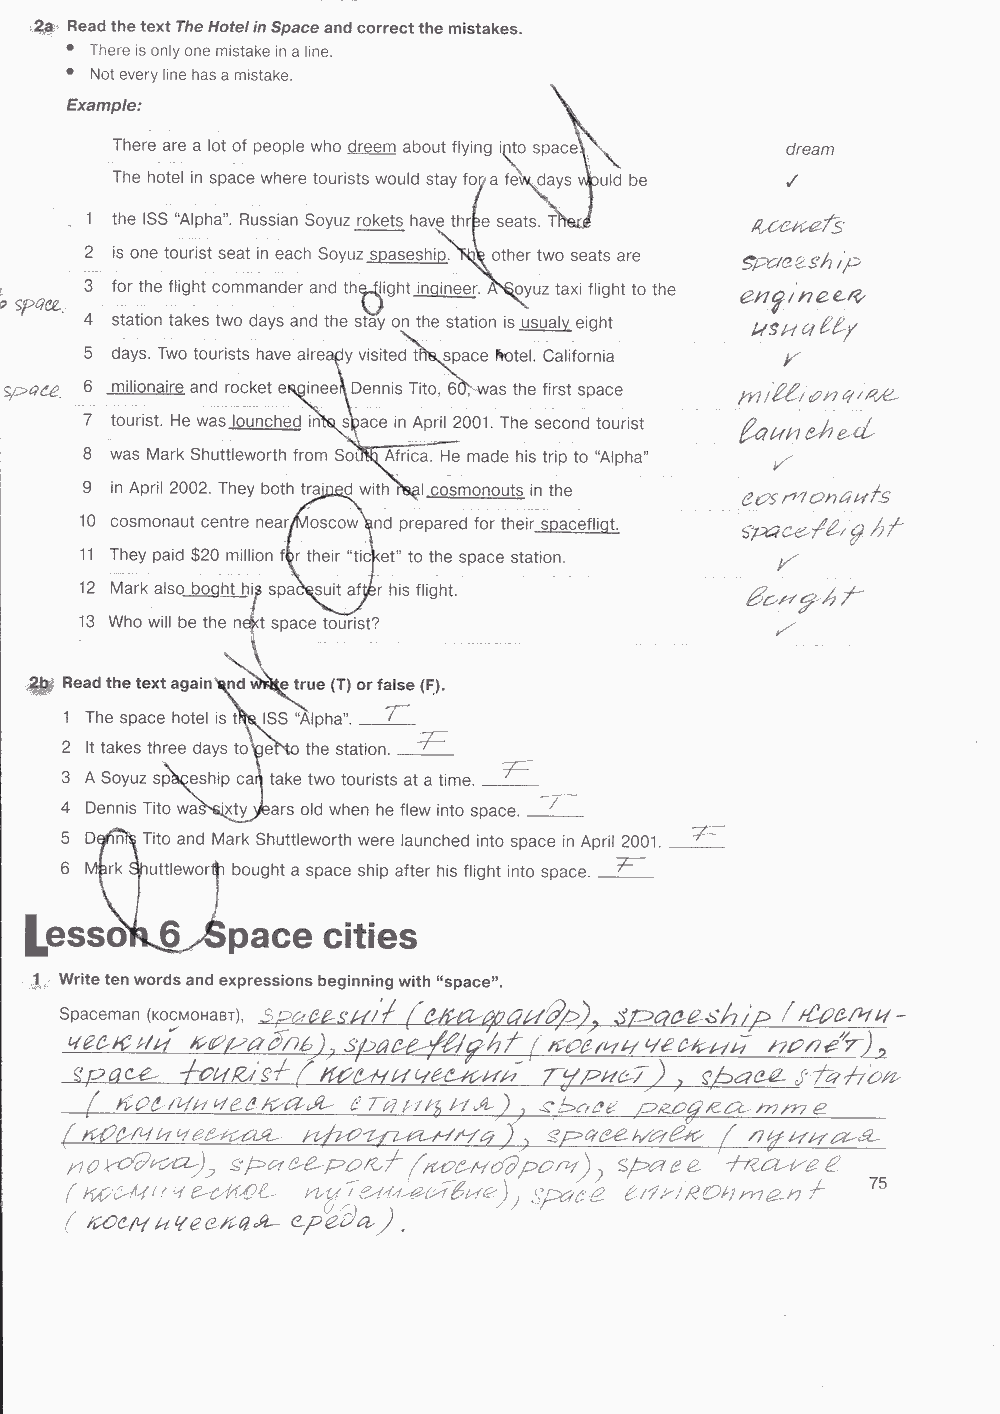 2a Read the text The Hotel in Space and correct the mistakes.
• There is only one mistake in a line.
• Not every line has a mistake.
Example:
There are a lot of people who dreem about flying into space. dream
The hotel in space where tourists would stay for a few days would be ✓
1 the ISS “Alpha”. Russian Soyuz rokets have three seats. There rockets
2 is one tourist seat in each Soyuz spaseship. The other two seats are spaceship
3 for the flight commander and the flight ingineer. A Soyuz taxi flight to the engineer
space.
4 station takes two days and the stay on the station is usualy eight usually
5 days. Two tourists have already visited the space hotel. California ✓
space.
6 milionaire and rocket engineer Dennis Tito, 60, was the first space millionaire
7 tourist. He was lounched into space in April 2001. The second tourist launched
8 was Mark Shuttleworth from South Africa. He made his trip to “Alpha” ✓
9 in April 2002. They both trained with real cosmonouts in the cosmonauts
10 cosmonaut centre near Moscow and prepared for their spacefligt. spaceflight
11 They paid $20 million for their “ticket” to the space station. ✓
12 Mark also boght his spacesuit after his flight. bought
13 Who will be the next space tourist? ✓
2b Read the text again and write true (T) or false (F).
1 The space hotel is the ISS “Alpha”. T
2 It takes three days to get to the station. F
3 A Soyuz spaceship can take two tourists at a time. F
4 Dennis Tito was sixty years old when he flew into space. T
5 Dennis Tito and Mark Shuttleworth were launched into space in April 2001. F
6 Mark Shuttleworth bought a space ship after his flight into space. F
Lesson 6 Space cities
1 Write ten words and expressions beginning with “space”.
Spaceman (космонавт), spacesuit (скафандр), spaceship (косми-
ческий корабль), spaceflight (космический полёт),
space tourist (космический турист), space station
(космическая станция), space programme
(космическая программа), spacewalk (лунная
походка), spaceport (космодром), space travel
(космическое путешествие), space environment
(космическая среда).
75